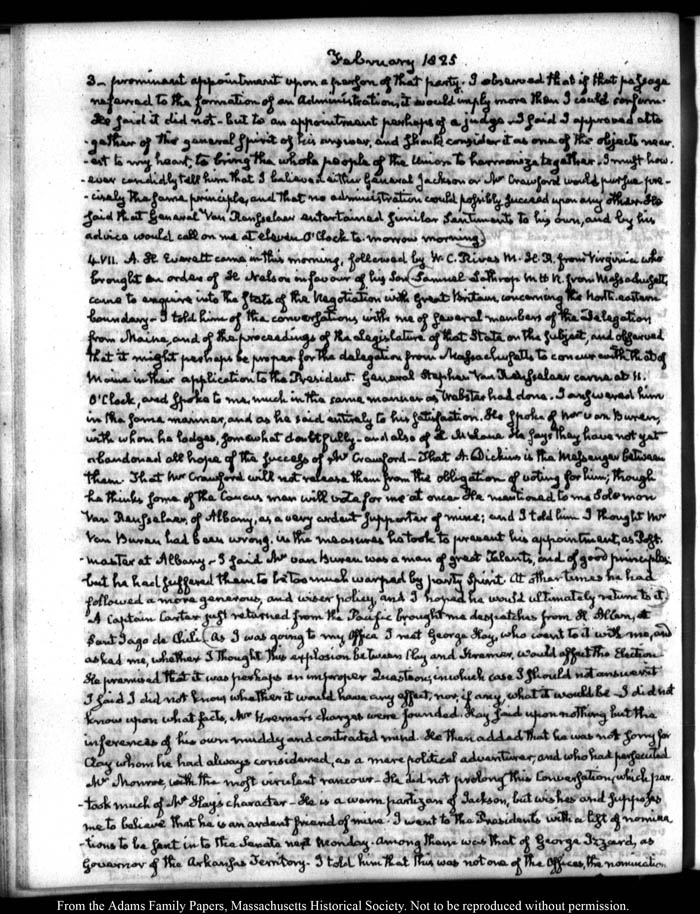 February 1825
3— prominent appointment upon a person of that party. I observed that if that passage
referred to the formation of an Administration, it would imply more than I could confirm.
He said it did not— but to an appointment perhaps of a judge. I said I approved alto
-gether of the general Spirit of his answer, and should consider it as one of the objects near-
-est to my heart, to bring the whole people of the Union to harmonize together. I must how-
-ever candidly tell him that I believed either General Jackson or Mr Crawford would pursue pre-
-cisely the same principle, and that no administration could possibly succeed upon any other. He
said that General Van Rensselaer entertained similar Sentiments to his own, and by his
advice would call on me at eleven O'Clock to-morrow morning.
4. VII. A. H. Everett came in this morning, followed by W. C. Rives M. H. R. from Virginia who
brought an order of H Nelson in favour of his Son. Samuel Lathrop M H R. from Massachusetts,
came to enquire into the State of the Negotiation with Great Britain, concerning the North-eastern
boundary— I told him of the conversations with me of several members of the Delegation
from Maine, and of the proceedings of the Legislature of that State on the subject, and observed
that it might perhaps be proper for the delegation from Massachusetts to concur with that of
Maine in their application to the President. General Stephen Van Rensselaer came at 11.
O'Clock, and spoke to me, much in the same manner as Webster had done. I answered him
in the same manner, and as he said entirely to his satisfaction. He spoke of Mr Van Buren,
with whom he lodges, somewhat doubtfully— and also of L McLane. He says they have not yet
abandoned all hope of the success of Mr Crawford— That A. Dickins is the Messenger between
them. That Mr Crawford will not release them from the obligation of voting for him; though
he thinks some of the Caucus men will vote for me at once. He mentioned to me Solomon
Van Rensselaer, of Albany, as a very ardent supporter of mine; and I told him I thought Mr
Van Buren had been wrong, in the measures he took to prevent his appointment, as Post.
-master at Albany— I said Mr Van Buren was a man of great Talents, and of good principles;
but he had suffered them to be too much warped by party Spirit. At other times he had
followed a more generous, and wiser policy, and I hoped he would ultimately return to it.
A Captain Carter just returned from the Pacific brought me despatches from H. Allen, at
Sant Iago de Chili. As I was going to my Office I met George Hay, who went to it with me, and
asked me, whether I thought this explosion between Clay and Kremer, would affect the Election
He premised that it was perhaps an improper Question, in which case I should not answer it
I said I did not know whether it would have any effect, nor, if any, what it would be— I did not
know upon what facts, Mr Kremer's charges were founded. Hay said upon nothing but the
inferences of his own muddy and contracted mind. He then added that he was not sorry for
Clay whom he had always considered, as a mere political adventurer, and who had persecuted
Mr Monroe, with the most virulent rancour— He did not prolong this Conversation, which par
-took much of Mr Hay's character— He is a warm partizan of Jackson, but wishes and supposes
me to believe that he is an ardent friend of mine. I went to the President's with a list of nomina
-tions to be sent in to the Senate next Monday. Among them was that of George Izzard, as
Governor of the Arkansas Territory. I told him that this was not one of the Offices, the nomination
From the Adams Family Papers, Massachusetts Historical Society. Not to be reproduced without permission.